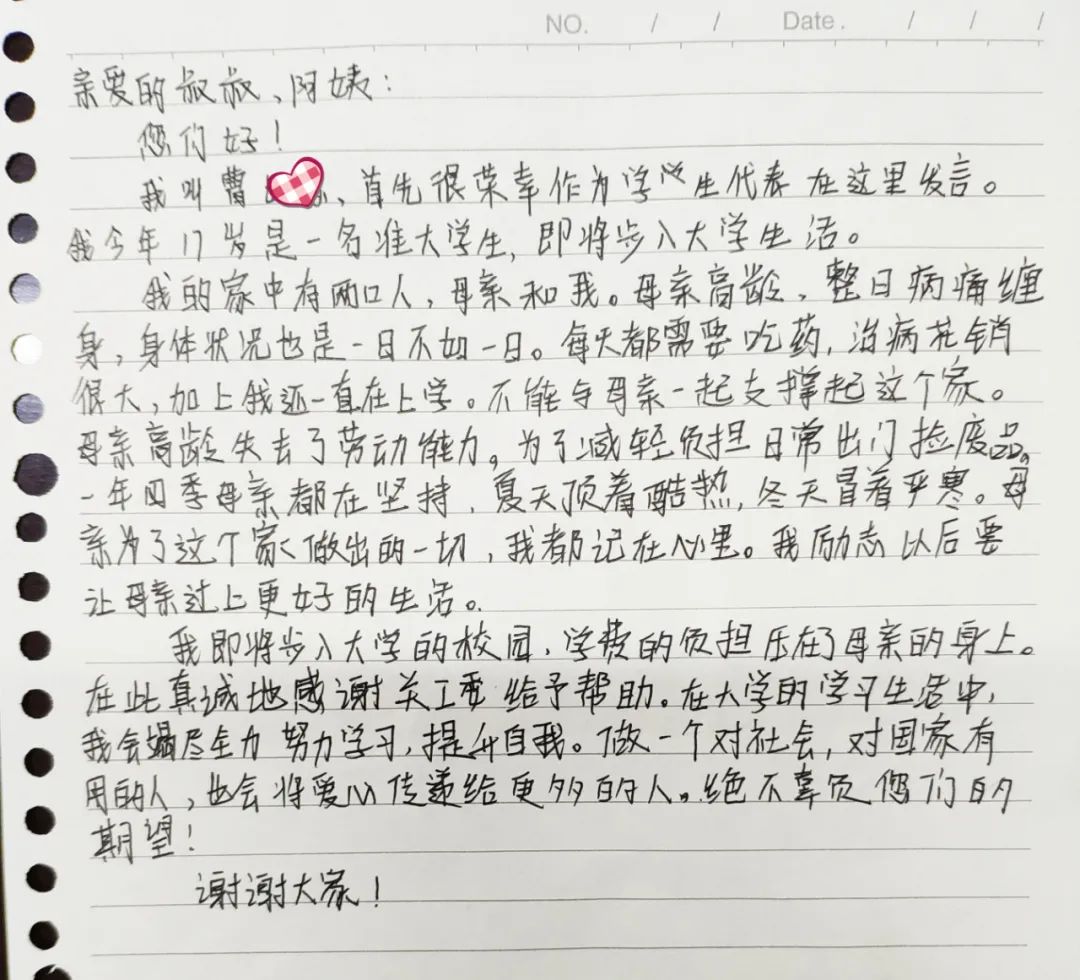 NO. / / Date. / / /
亲爱的叔叔、阿姨：
您们好！
我叫曹、首先很荣幸作为学生代表在这里发言。
我今年17岁是一名准大学生，即将步入大学生活。
我的家中有两口人，母亲和我。母亲高龄，整日病痛缠
身，身体状况也是一日不如一日。每天都需要吃药，治病花销
很大，加上我还一直在上学。不能与母亲一起支撑起这个家。
母亲高龄失去了劳动能力。为了减轻负担日常出门捡废品。
一年四季母亲都在坚持，夏天顶着酷热，冬天冒着严寒。母
亲为了这个家做出的一切，我都记在心里。我励志以后要
让母亲过上更好的生活。
我即将步入大学的校园，学费的负担压在了母亲的身上。
在此真诚地感谢关工委给予帮助。在大学的学习生活中，
我会竭尽全力努力学习，提升自我。做一个对社会，对国家有
用的人，也会将爱心传递给更多的人。绝不辜负您们的
期望！
谢谢大家！